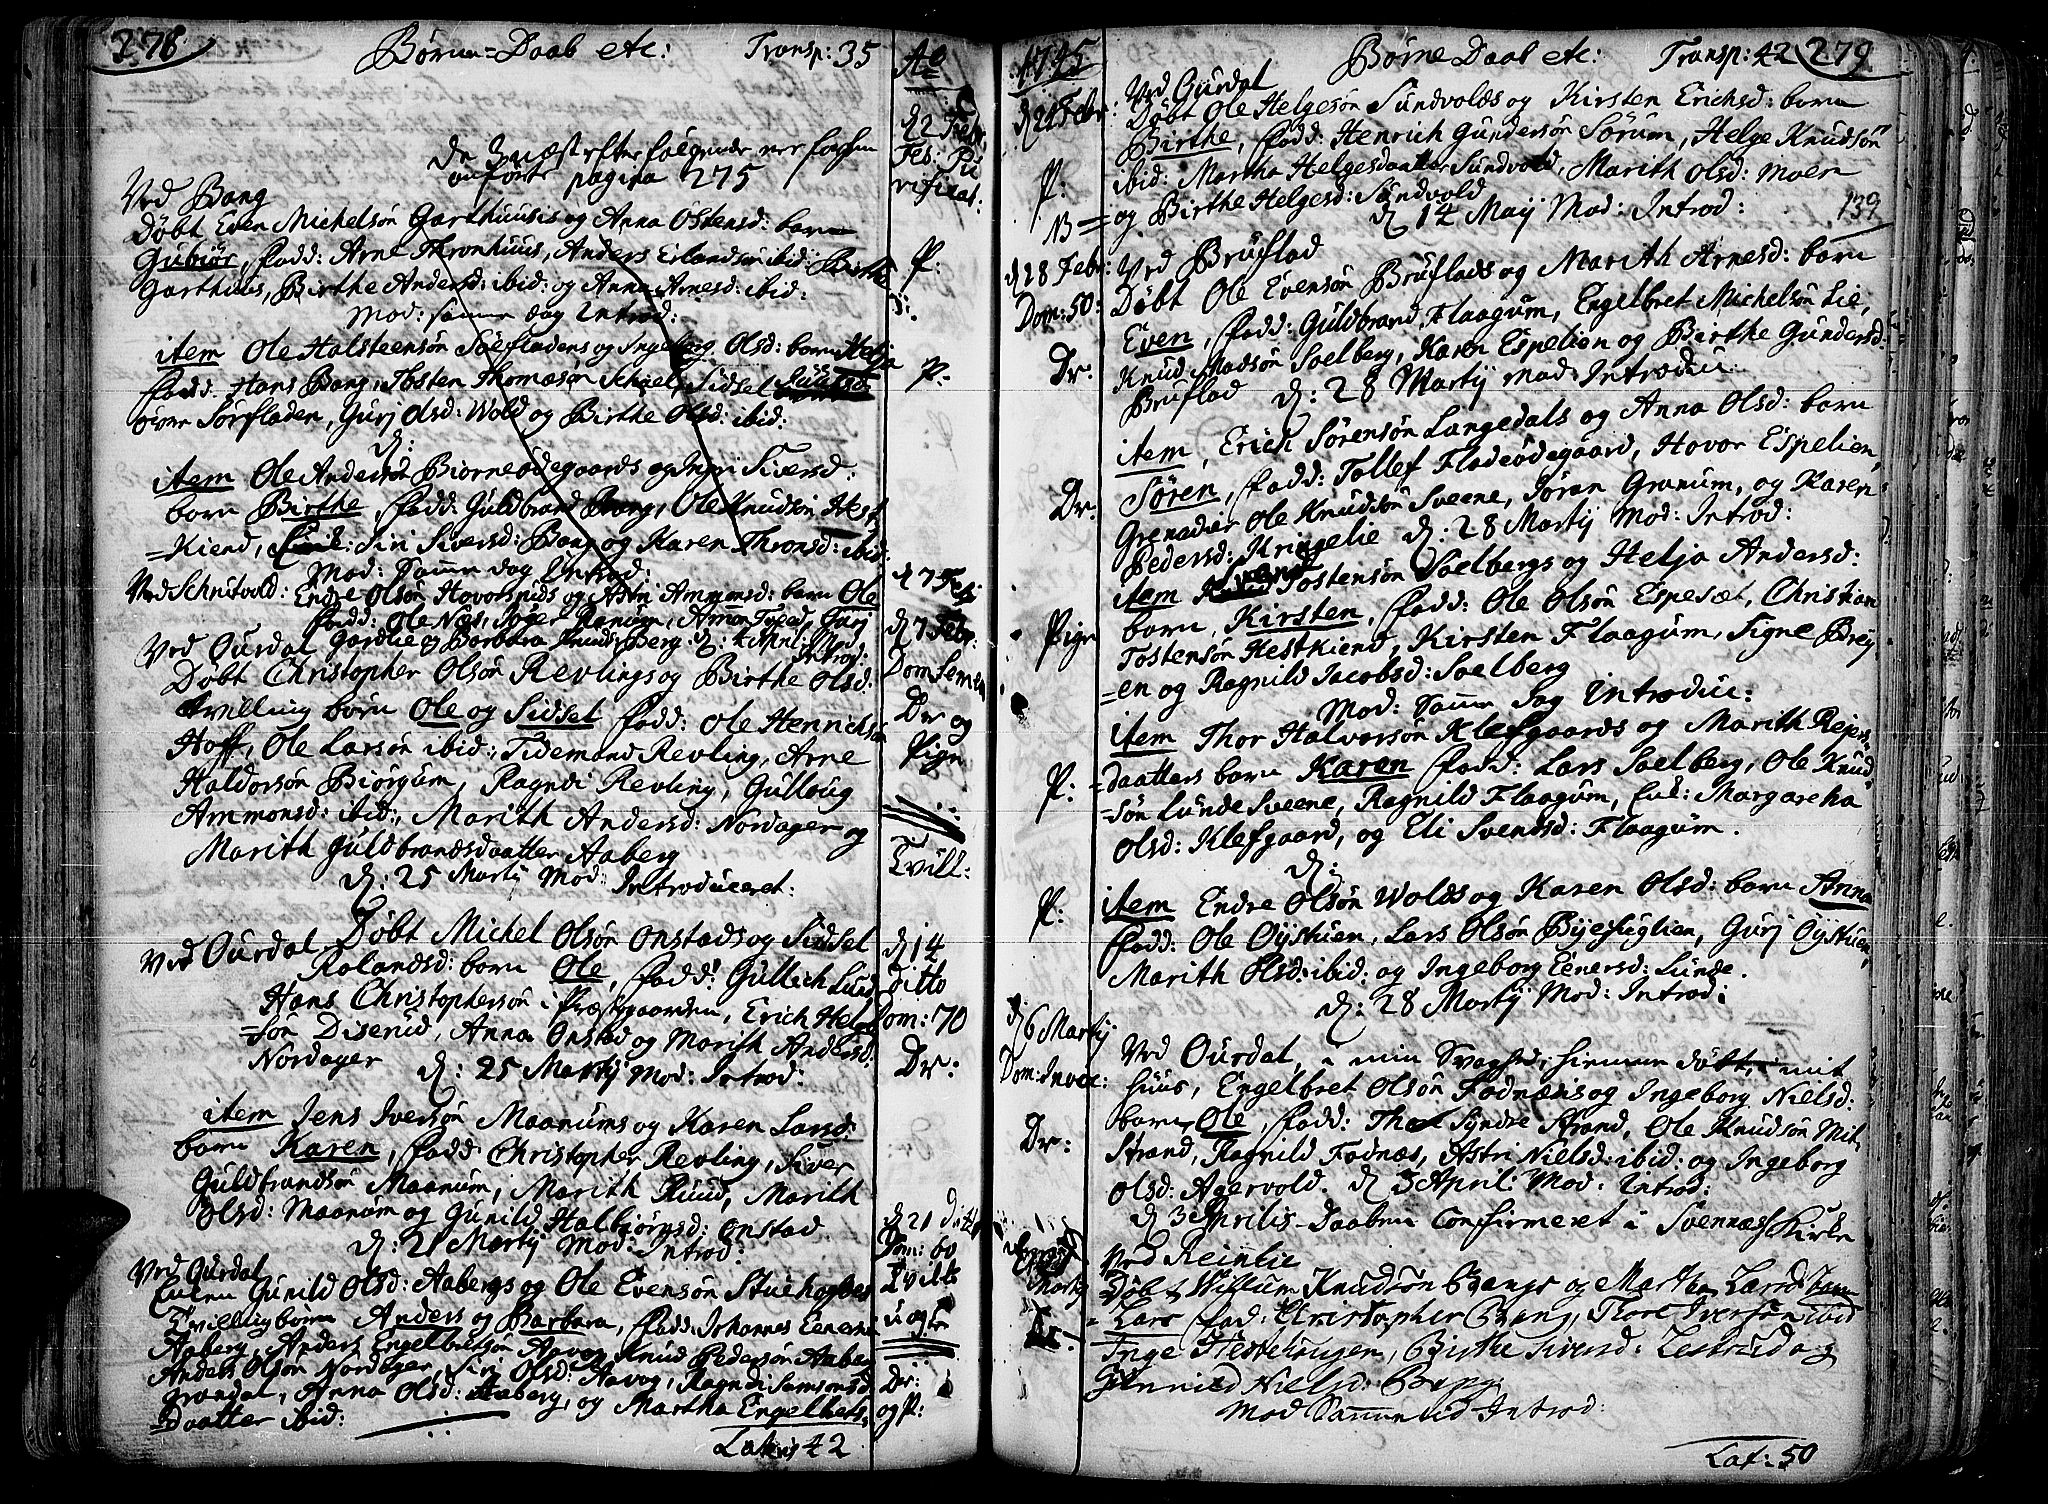 278 Børne=Daab etc: Transp: 35 Ao
d 2 Febr.
Fes: Pu
rificat:
De 3 næst efter følgende ere forhen
anførte pagina 275
Ved Bang
Døbt Even Michelsøn Garthuusis og Anna Østensd: barn
Gubiør, fadd: Arne Thronhuus, Anders Erlandsøn ibid: Birthe
Garthuus, Birthe Andersd: ibid: og Anna Arnesd: ibid:
Mod: samme dag Introd:
P:
item Ole Halsteensøn Sørfladens og Ingeborg Olsd: barn Helja
fadd. Hans Bang, Tosten Thomæsøn Sidsel
øvre Sørfladen, Gurj Olsd: Wold og Birthe Olsd: ibid:
d:
P:
item Ole Anders Biørneødegaards og Ingri Siversd:
barn Birthe, fadd: Guldbrand Bang, Ole Knudsøn Hest
=Kiend, Siri Siversd: Bang og Karen Thronsd: ibid:
Mod: Samme dag Introd:
Ved Schnitvold: Endre Olsøn Hovorsrud og Astri Ammonsd: barn Ole
fadd: Ole Næs, Amon Gurj
Gardlie og Barbara Knuds: Berg d: Mod
Introd:
d 7 Feb:
Ved Ourdal
Døbt Christopher Olsøn Revlings og Birthe Olsd:
tvilling børn Ole og Sidsel fadd: Ole Henrichsøn
Hoff, Ole Larsøn ibid:, Tidemand Revling, Arne
Haldorsøn Biørgum, Ragndi Revling, Gulloug
Ammonsd: ibid:, Marith Andersd: Nordager og
Marith Guldbrandsdaatter Aaberg
d: 25 Martij Mod: Introduceret:
d 7 Febr:
Dr og
Pign
Tvill:
Ved Ourdal Døbt Michel Olsøn Onstads og Sidsel
Rolandsd: barn Ole, fadd: Gullich Lund
Hans Christophersøn i Præstgaarden, Erich Helge
=søn Diserud, Anna Onstad og Marith Andersd:
Nordager d: 25 Martij Mod: Introd:
d 14
Ditto
Dom: 70
Dr:
item Jens Iversøn Maanums og Karen Larsd:
barn Karen, fadd: Christopher Revling, Siver
Guldbrandsøn Maanum, Marith Ruud, Marith
Olsd: Maanum og Gunild Halbjørnsd: Onstad
d: 21 Martij Mod: Introd:
Ved Ourdal
Gunild Olsd: Aabergs og Ole Evensøn
Tvillingbørn Anders og Barbara, fadd: Johannes Eenersøn
Aaberg, Anders Engelbretsøn Aavog Knud Pedersøn Aaberg
Anders Olsøn Nordager, Siri Olsd: Aavog, Ragndi Samsonsd
Grøndal, Anna Olsd: Aaberg, og Martha Engelbrets
=daatter ibid:
d 21 ditto
Dom: 60
Tvill:
Dr:
og P:
Lateris 42
1745 Børne Daab etc: Transp: 42 279
Ved Ourdal
d 21 Febr: Døbt Ole Helgesøn Sundvolds og Kirsten Erichsd: barn
Birthe, fadd: Henrich Gundersøn Sørum, Helge Knudsøn
ibid: Martha Helgesdaatter Sundvold, Marith Olsd: Moen
og Birthe Helgesd: Sundvold
d 14 Maij Mod: Introd: 139
P:
NB=
d 28 Febr: Ved Bruflad
Dom: 50: Døbt Ole Evensøn Bruflads og Marith Arnesd: barn
Even, fadd: Guldbrand Flaagum, Engelbret Michelsøn Lie,
Knud Madsøn Soelberg, Karen Espelien og Birthe Gundersd:
Bruflad d: 28 Martij Mod: Introdu
Dr:
item, Erich Sørensøn Langedals og Anna Olsd: barn
Søren, fadd: Tollef Fladeødegaard, Hovor Espelien,
Grenadier Ole Knudsøn Sveene, Jøran Granum, og Karen
Pedersd: Kringelie d: 28 Martij Mod: Introd:
Dr.
item Tostensøn Soelbergs og Helja Andersd:
barn, Kirsten, fadd: Ole Olsøn Espesæt, Christian
Tostensøn Hestkiend, Kirsten Flaagum, Signe Brey
=en og Ragnild Jacobsd: Soelberg
Mod: Samme Dag Introduc:
Pign
item Thor Halvorsøn Klefgaards og Marith Rejers
=daatters barn Karen fadd: Lars Soelberg, Ole Knud
=søn Lunde Sveene, Ragnild Flaagum, Margaretha
Olsd: Klefgaard, og Eli Svendsd: Flaagum.
d:
P:
item Endre Olsøn Wolds og Karen Olsd: barn Anna
fadd: Ole Oystuen, Lars Olsøn Gurj Oystuen,
Marith Olsd: ibid: og Ingeborg Eenersd: Lunde.
d: 28 Martij Mod: Introd:
P:
d 6 Martij
Dom: Invoc:
Ved Ourdal, i min Svaghed, hiemme døbt, i mit
huus, Engelbret Olsøn Fodnæsis og Ingeborg Nielsd:
barn, Ole, fadd: Syndre Strand, Ole Knudsøn Mit
Strand, Ragnild Fodnæs, Astri Nielsd: ibid: og Ingeborg
Olsd: Agervold. d 3 April: Mod: Introd:
d 3 Aprilis Daaben Confirmeret i Svennæs Kirke
Dr:
Ved Reinlie
Døbt Willum Knudsøn Bangs og Martha Larsd:
Lars fad: Christopher Bang, Thore Iversøn ibid
Inge Hestehaugen, Birthe Siversd: og
Gunnild Nielsd: Bang
Mod Samme tid Introd:
Lat: 50